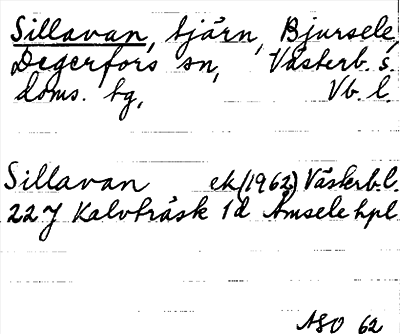 Sillavan, tjärn, Bjursele,
Degerfors sn, Västerb. s.
doms. tg, Vb. l.
Sillavan ek (1962) Västerb. l.
22 J Kalvträsk 1d Åmsele hpl
ASO 62